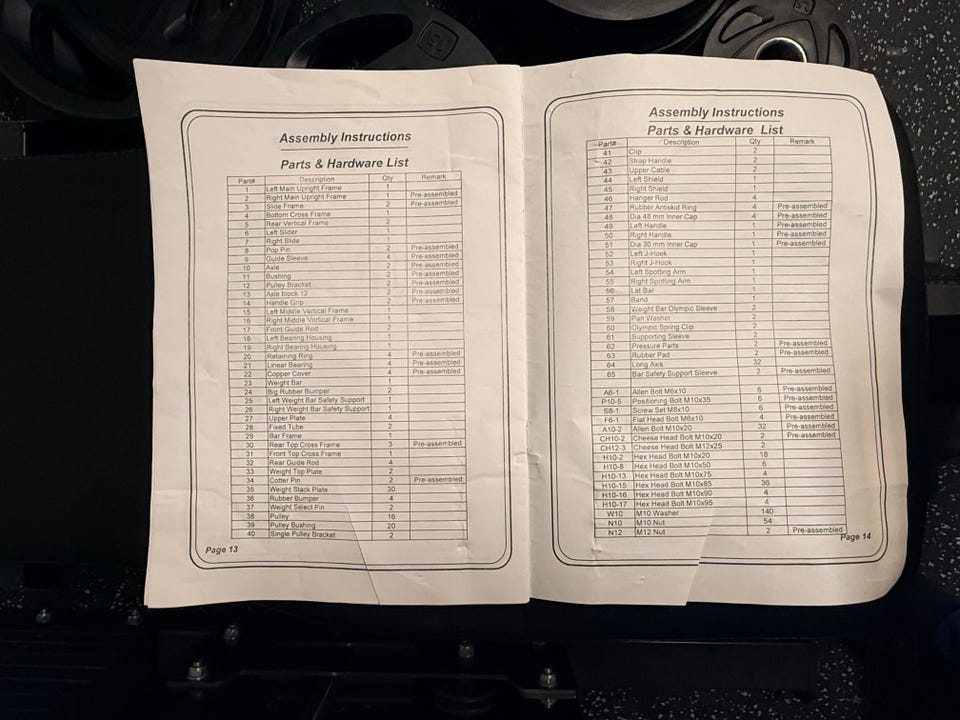 Assembly Instructions
Parts & Hardware List
Part# Description Qty Remark
1 Left Main Upright Frame 1
2 Right Main Upright Frame 1 Pre-assembled
3 Slide Frame 2 Pre-assembled
4 Bottom Cross Frame 1
5 Rear Vertical Frame 2
6 Left Slider 1
7 Right Slide 1
8 Pop Pin 2 Pre-assembled
9 Guide Sleeve 4 Pre-assembled
10 Axle 2 Pre-assembled
11 Bushing 2 Pre-assembled
12 Pulley Bracket 2 Pre-assembled
13 Axle block 12 2 Pre-assembled
14 Handle Grip 2 Pre-assembled
15 Left Middle Vertical Frame 1
16 Right Middle Vertical Frame 1
17 Front Guide Rod 2
18 Left Bearing Housing 1
19 Right Bearing Housing 1
20 Retaining Ring 4 Pre-assembled
21 Linear Bearing 4 Pre-assembled
22 Copper Cover 4 Pre-assembled
23 Weight Bar 1
24 Big Rubber Bumper 2
25 Left Weight Bar Safety Support 1
26 Right Weight Bar Safety Support 1
27 Upper Plate 4
28 Fixed Tube 2
29 Bar Frame 1
30 Rear Top Cross Frame 3 Pre-assembled
31 Front Top Cross Frame 1
32 Rear Guide Rod 4
33 Weight Top Plate 2
34 Cotter Pin 2 Pre-assembled
35 Weight Stack Plate 30
36 Rubber Bumper 4
37 Weight Select Pin 2
38 Pulley 16
39 Pulley Bushing 20
40 Single Pulley Bracket 2
Page 13
Assembly Instructions
Parts & Hardware List
Part# Description Qty Remark
41 Clip 2
42 Strap Handle 2
43 Upper Cable 2
44 Left Shield 1
45 Right Shield 1
46 Hanger Rod 4
47 Rubber Antiskid Ring 4 Pre-assembled
48 Dia 48 mm Inner Cap 4 Pre-assembled
49 Left Handle 1 Pre-assembled
50 Right Handle 1 Pre-assembled
51 Dia 30 mm Inner Cap 1 Pre-assembled
52 Left J-Hook 1
53 Right J-Hook 1
54 Left Spotting Arm 1
55 Right Spotting Arm 1
56 Lat Bar 1
57 Band 1
58 Weight Bar Olympic Sleeve 2
59 Pan Washer 2
60 Olympic Spring Clip 2
61 Supporting Sleeve 2
62 Pressure Parts 2 Pre-assembled
63 Rubber Pad 2 Pre-assembled
64 Long Axis 32
65 Bar Safety Support Sleeve 2 Pre-assembled
A6-1 Allen Bolt M6x10 6 Pre-assembled
P10-5 Positioning Bolt M10x35 6 Pre-assembled
S8-1 Screw Set M8x10 6 Pre-assembled
F6-1 Flat Head Bolt M6x10 4 Pre-assembled
A10-2 Allen Bolt M10x20 32 Pre-assembled
CH10-2 Cheese Head Bolt M10x20 2 Pre-assembled
CH12-3 Cheese Head Bolt M12x25 2
H10-2 Hex Head Bolt M10x20 18
H10-8 Hex Head Bolt M10x50 6
H10-13 Hex Head Bolt M10x75 4
H10-15 Hex Head Bolt M10x85 36
H10-16 Hex Head Bolt M10x90 4
H10-17 Hex Head Bolt M10x95 4
W10 M10 Washer 140
N10 M10 Nut 54
N12 M12 Nut 2 Pre-assembled
Page 14